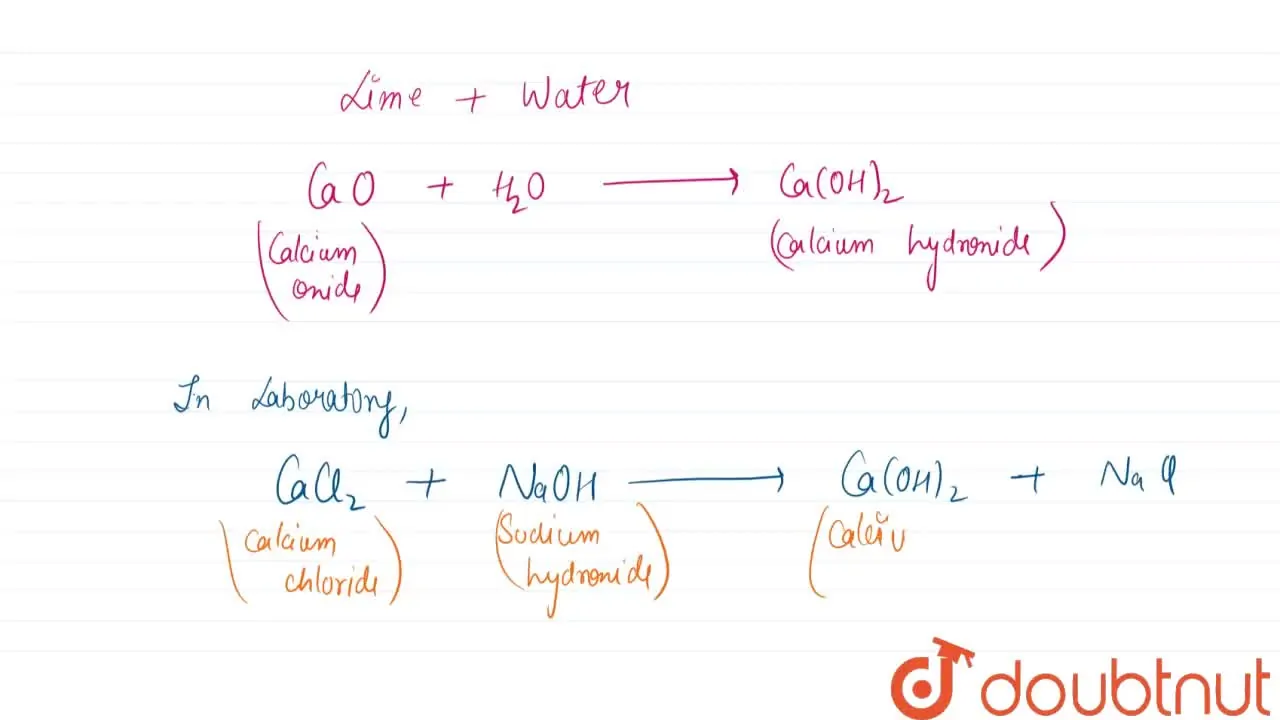 Lime + Water
CaO + H2O ⟶ Ca(OH)2
(Calcium oxide) (Calcium hydroxide)
In Laboratory,
CaCl2 + NaOH ⟶ Ca(OH)2 + NaCl
(Calcium chloride) (Sodium hydroxide) (Calciu
doubtnut